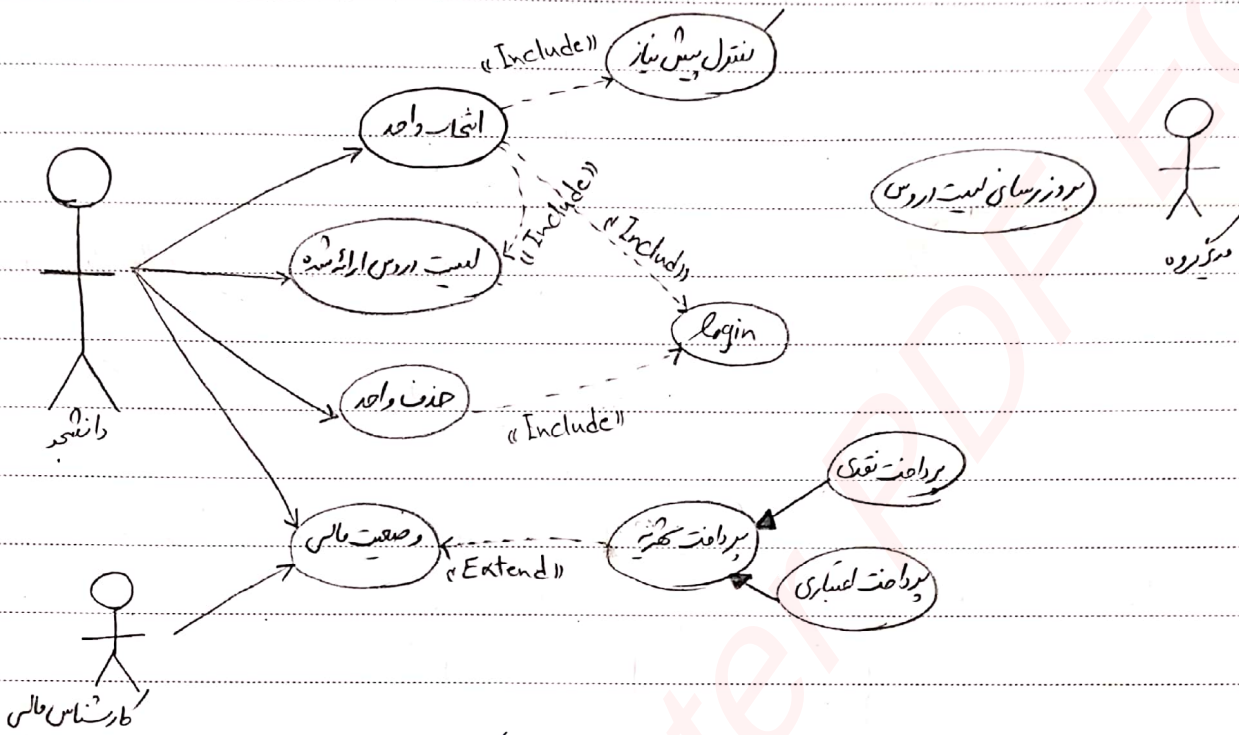 «Include»
کنترل پیش نیاز
انتخاب واحد
«Include»
«Includ»
بروزرسانی لیست دروس
مدیر گروه
لیست دروس ارائه شده
login
حذف واحد
«Include»
دانشجو
پرداخت نقدی
وضعیت مالی
«Extend»
پرداخت شهریه
پرداخت اعتباری
کارشناس مالی